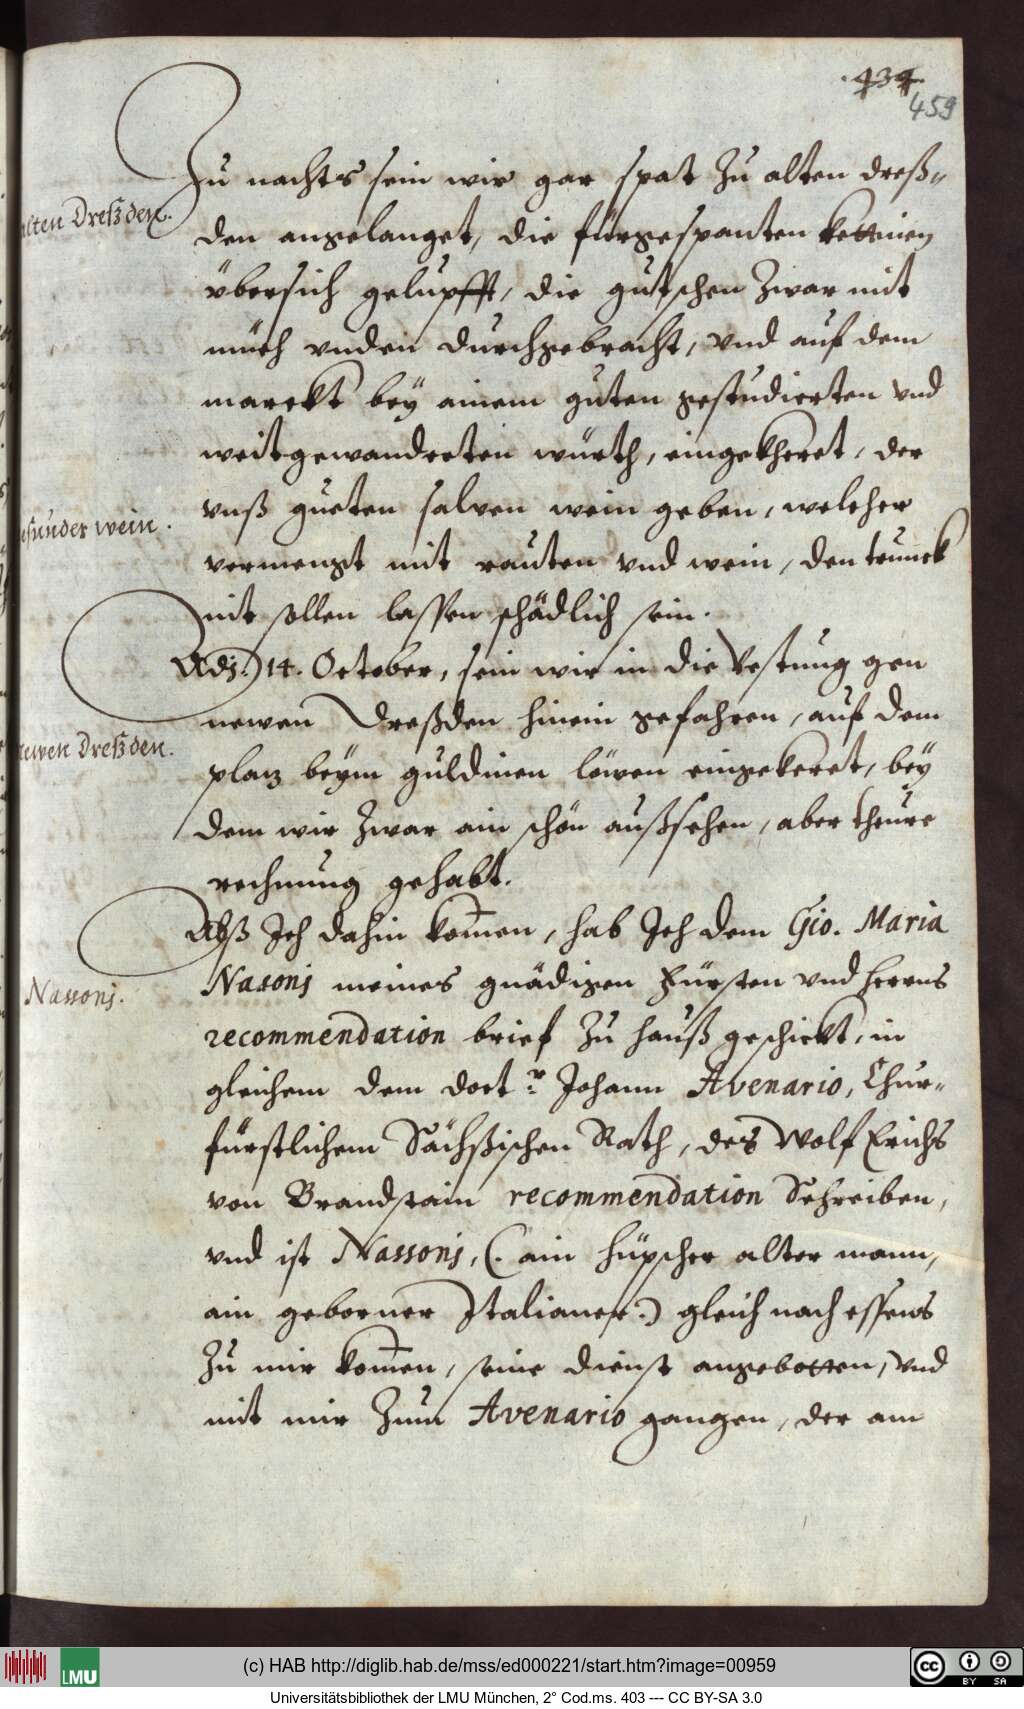 .434.
459
Zu nachts sein wir gar spat Zu alten dreß„
alten Dreßden.
den angelanget, die fürgespanten kettinen
übersich gelupfft, die gutschen Zwar mit
müeh unden durchgebracht, vnd auf dem
marckt beÿ ainem guten gestudierten vnd
weitgewanderten würth, eingekheret, der
vnß gueten salven wein geben, welcher
gesunder wein.
vermengt mit rauten vnd wein, den trunck
nit sollen lassen schädlich sein.
Adj. 14. October, sein wir in die Vestung gen
newen Dreßden hinein gefahren, auf dem
newen Dreßden.
plaz beÿm guldinen löwen eingekeret, beÿ
dem wir Zwar ain schön außsehen, aber theure
rechnung gehabt.
Alß Ich dahin komen, hab Ich dem Gio. Maria
Nasonj meines gnädigen Fürsten vnd herrns
Nassonj.
recommendation brief Zu hauß geschickt, in
gleichem dem doct:r Johann Avenario, Chur„
fürstlichem Sächßischen Rath, des Wolf Erichs
von Brandstain recommendation Schreiben,
vnd ist Nassonj, (: ain hüpscher alter mann,
ain geborner Italianer:) gleich nach essens
Zu mir komen, seine dienst angebotten, vnd
mit mir Zum Avenario gangen, der am
LMU
(c) HAB http://diglib.hab.de/mss/ed000221/start.htm?image=00959
cc BY SA
Universitätsbibliothek der LMU München, 2° Cod.ms. 403 --- CC BY-SA 3.0